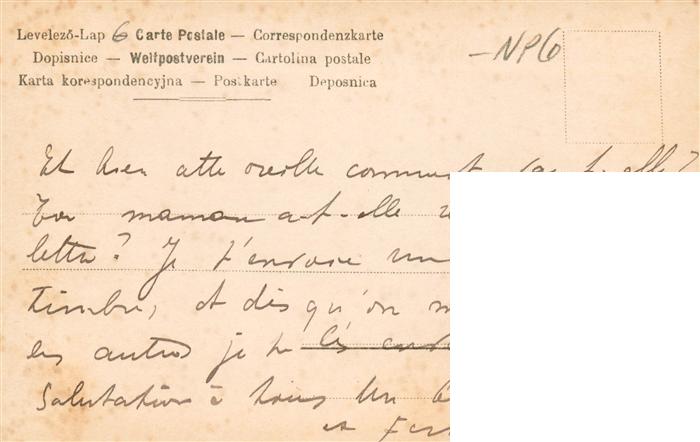 Levelező-Lap 6 Carte Postale — Correspondenzkarte
Dopisnice — Weltpostverein — Cartolina postale
Karta korespondencyjna — Postkarte Deposnica
—NP6
Et bien cette oreille comment va-t-elle?
Ton maman a-t-elle
lettre? Je t'envoie un
timbre, et dès qu'on
les autres je te les
Salutation à tous Un
et